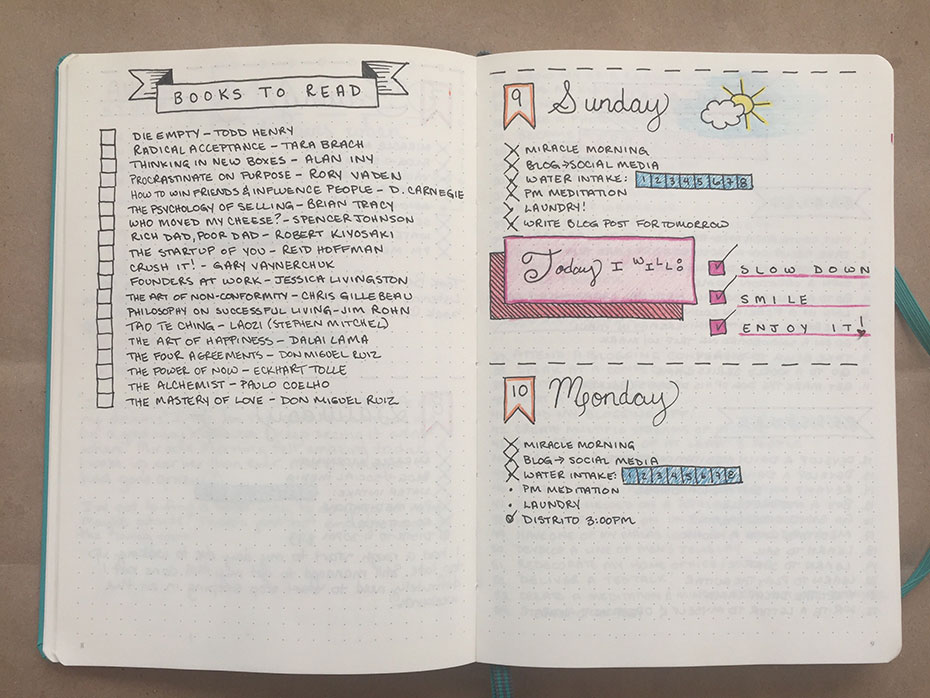 BOOKS TO READ
DIE EMPTY – TODD HENRY
RADICAL ACCEPTANCE – TARA BRACH
THINKING IN NEW BOXES – ALAN INY
PROCRASTINATE ON PURPOSE – RORY VADEN
HOW TO WIN FRIENDS & INFLUENCE PEOPLE – D. CARNEGIE
THE PSYCHOLOGY OF SELLING – BRIAN TRACY
WHO MOVED MY CHEESE? – SPENCER JOHNSON
RICH DAD, POOR DAD – ROBERT KIYOSAKI
THE STARTUP OF YOU – REID HOFFMAN
CRUSH IT! – GARY VAYNERCHUK
FOUNDERS AT WORK – JESSICA LIVINGSTON
THE ART OF NON-CONFORMITY – CHRIS GILLEBEAU
PHILOSOPHY ON SUCCESSFUL LIVING – JIM ROHN
TAO TE CHING – LAOZI (STEPHEN MITCHEL)
THE ART OF HAPPINESS – DALAI LAMA
THE FOUR AGREEMENTS – DON MIGUEL RUIZ
THE POWER OF NOW – ECKHART TOLLE
THE ALCHEMIST – PAULO COELHO
THE MASTERY OF LOVE – DON MIGUEL RUIZ
8
9 Sunday
MIRACLE MORNING
BLOG → SOCIAL MEDIA
WATER INTAKE: 1 2 3 4 5 6 7 8
PM MEDITATION
LAUNDRY!
WRITE BLOG POST FOR TOMORROW
Today I WILL:
SLOW DOWN
SMILE
ENJOY IT!
10 Monday
MIRACLE MORNING
BLOG → SOCIAL MEDIA
WATER INTAKE: 1 2 3 4 5 6 7 8
PM MEDITATION
LAUNDRY
DISTRITO 3:00PM
9